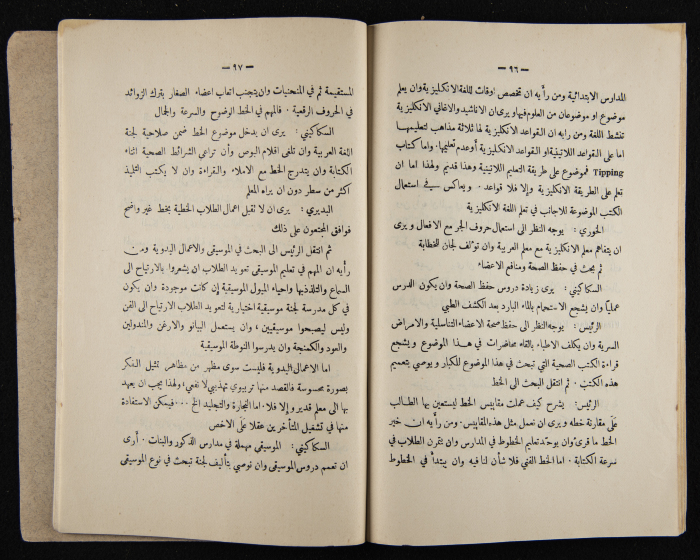 — ٩٦ —
المدارس الابتدائية ومن رأيه ان تخصص اوقات للغة الانكليزية وان يعلم
موضوع او موضوعان من العلوم فيها ويرى ان الاناشيد والاغاني الانكليزية
تنشط اللغة ومن رايه ان القواعد الانكليزية لها ثلاثة مذاهب لتعليمها
اما على القواعد اللاتينية او القواعد الانكليزية أو عدم تعليمها. واما كتاب
Tipping فموضوع على طريقة التعليم اللاتينية وهذا قديم ولهذا اما ان
تعلم على الطريقة الانكليزية وإلا فلا قواعد . ويعاكس في استعمال
الكتب الموضوعة للاجانب في تعلم اللغة الانكليزية
الخوري : يوجه النظر الى استعمال حروف الجر مع الافعال ويرى
ان يتفاهم معلم الانكليزية مع معلم العربية وان تؤلف لجان للخطابة
ثم بحث في حفظ الصحة ومنافع الاعضاء
السكاكيني : يرى زيادة دروس حفظ الصحة وان يكون الدرس
عملياً وان يشجع الاستحمام بالماء البارد بعد الكشف الطبي
الرئيس : يوجه النظر الى حفظ صحة الاعضاء التناسلية والامراض
السرية وان يكلف الاطباء بالقاء محاضرات في هذا الموضوع ويشجع
قراءة الكتب الصحية التي تبحث في هذا الموضوع للكبار ويوصي بتعميم
هذه الكتب . ثم انتقل البحث الى الخط
الرئيس : يشرح كيف عملت مقاييس الخط ليستعين بها الطالب
على مقارنة خطه ويرى ان نعمل مثل هذه المقاييس . ومن رأيه ان خير
الخط ما قرئ وان يوحّد تعليم الخطوط في المدارس وان يتمرن الطلاب في
سرعة الكتابة . اما الخط الفني فلا شأن لنا فيه وان يبتدأ في الخطوط
— ٩٧ —
المستقيمة ثم في المنحنيات وان يتجنب اتعاب اعضاء الصغار بترك الزوائد
في الحروف الرقعية . فالمهم في الخط الوضوح والسرعة والجمال
السكاكيني : يرى ان يدخل موضوع الخط ضمن صلاحية لجنة
اللغة العربية وان تلغى اقلام البوص وأن تراعي الشرائط الصحية اثناء
الكتابة وان يتدرج الخط مع الاملاء والقراءة وان لا يكتب التلميذ
اكثر من سطر دون ان يراه المعلم
البديري : يرى ان لا تقبل اعمال الطلاب الخطية بخط غير واضح
فوافق المجتمعون على ذلك
ثم انتقل الرئيس الى البحث في الموسيقى والاعمال اليدوية ومن
رأيه ان المهم في تعليم الموسيقى تعويد الطلاب ان يشعروا بالارتياح الى
السماع والتلذذ بها واحياء الميول الموسيقية إن كانت موجودة وان يكون
في كل مدرسة لجنة موسيقية اختيارية لتعويد الطلاب الارتياح الى الفن
وليس ليصبحوا موسيقيين ، وان يستعمل البيانو والارغن والمندولين
والعود والكمنجة وان يدرسوا النوطة الموسيقية
اما الاعمال اليدوية فليست سوى مظهر من مظاهر تمثيل الفكر
بصورة محسوسة فالقصد منها تربيوي تهذيبي لا نفعي ولهذا يجب ان يعهد
بها الى معلم قدير وإلا فلا. اما النجارة والتجليد الخ ... فيمكن الاستفادة
منها في تشغيل المتأخرين عقلا على الاخص
السكاكيني : الموسيقى مهملة في مدارس الذكور والبنات . أرى
ان تعمم دروس الموسيقى وان نوصي بتأليف لجنة تبحث في نوع الموسيقى